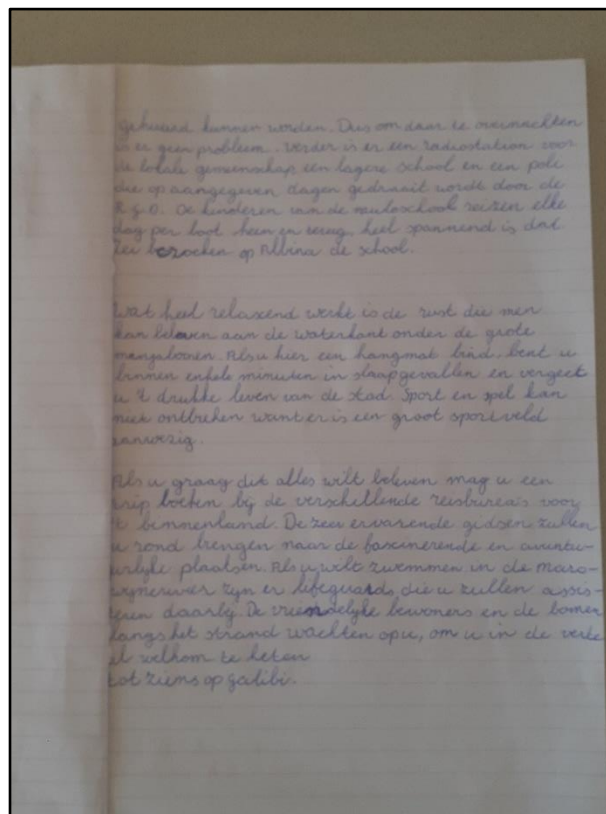 gehuurd kunnen worden. Dus om daar te overnachten
is er geen probleem. Verder is er een radiostation voor
de lokale gemeenschap een lagere school en een poli
die op aangegeven dagen gedraait wordt door de
R.G.D. De kinderen van de muloschool reizen elke
dag per boot heen en terug, heel spannend is dat
Zei bezoeken op Albina de school.
Wat heel relaxend werkt is de rust die men
kan beleven aan de waterkant onder de grote
mangabomen. Als u hier een hangmat bind, bent u
binnen enkele minuten in slaapgevallen en vergeet
u 't drukke leven van de stad. Sport en spel kan
niet ontbreken want er is een groot sportveld
aanwezig.
Als u graag dit alles wilt beleven mag u een
trip boeken bij de verschillende reisbureas voor
't binnenland. De zeer ervarende gidsen zullen
u rond brengen naar de fascinerende en avontu-
urlijke plaatsen. Als u wilt zwemmen in de Maro-
wijnerivier zijn er lifeguards, die u zullen assis-
teren daarbij. De vriendelijke bewoners en de bomen
langs het strand wachten op u, om u in de verte
al welkom te heten
tot ziens op galibi.